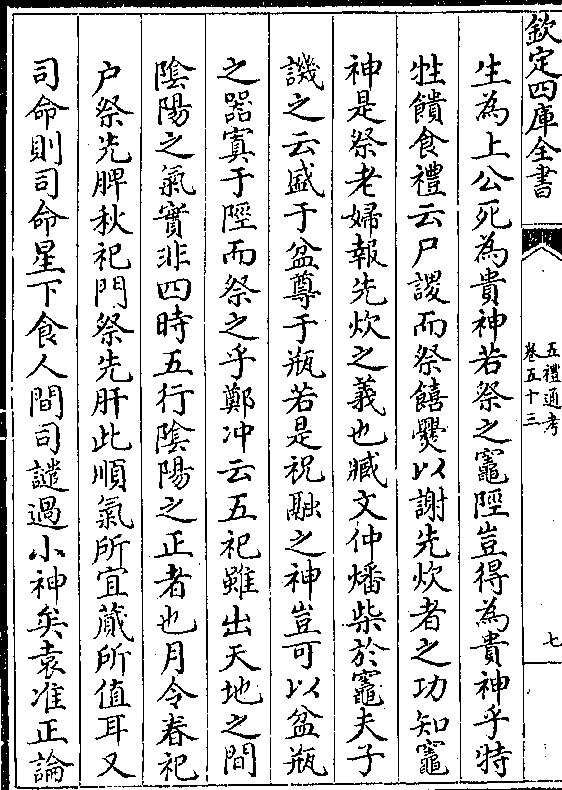 欽定四庫全書
五禮通考
卷五十三
七
生為上公死為貴神若祭之竈陘豈得為貴神乎特
牲饋食禮云尸謖而祭饎爨以謝先炊者之功知竈
神是祭老婦報先炊之義也臧文仲燔柴於竈夫子
譏之云盛于盆尊于瓶若是祝融之神豈可以盆瓶
之器寘于陘而祭之乎鄭冲云五祀雖出天地之間
陰陽之氣實非四時五行陰陽之正者也月令春祀
户祭先脾秋祀門祭先肝此順氣所宜蔵所值耳又
司命則司命星下食人間司譴過小神矣袁准正論